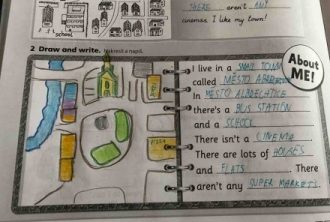 THERE aren't ANY
cinemas. I like my town!
school
2 Draw and write. Nakresli a napiš.
About ME!
I live in a SMALL TOWN
called MĚSTO ALBRECHTICE
In MĚSTO ALBRECHTICE
there's a BUS STATION
and a SCHOOL
There isn't a CINEMA.
There are lots of HOUSES
and FLATS. There
aren't any SUPERMARKETS.